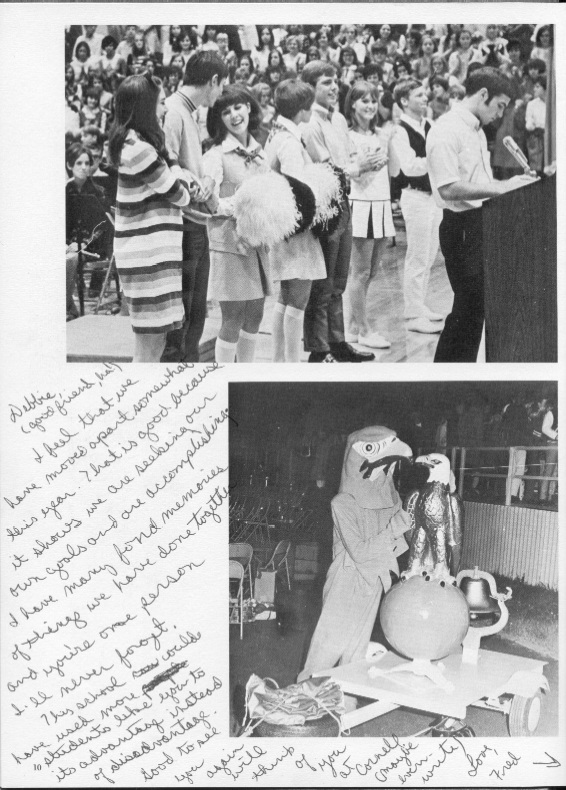 Debbie,
(good friend, ha!)
I feel that we
have moved apart somewhat
this year. That is good because
it shows we are seeking our
own goals and are accomplishing
I have many fond memories
of things we have done together
and you're one person
I'll never forget.
This school could
have used more
students like you to
its advantage instead
of disadvantage.
Good to see
you again
will
think
of you
at Cornell
(maybe
even
write)
Love,
Fred
10